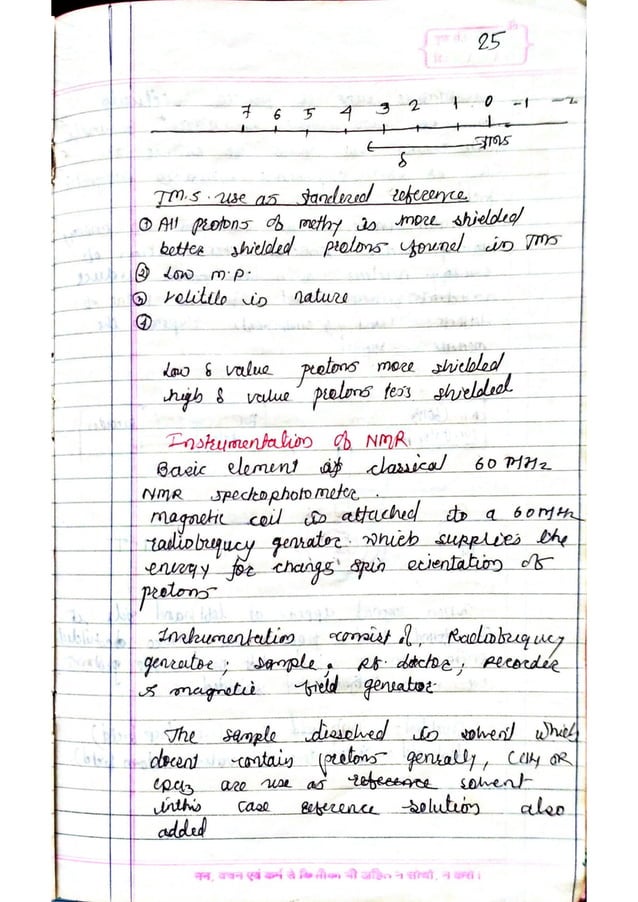 25
7 6 5 4 3 2 1 0 -1 -2
δ TMS
T.M.S. use as standered reference
① All protons of methy is more shielded
better shielded protons found in TMS
② Low m.p.
③ in nature
④
Low δ value protons more shielded
high δ value protons less shielded
Instrumentation of NMR
Basic element of classical 60 MHz
NMR spectrophotometer.
magnetic coil is attached to a 60 MHz
radiofrequcy genrator which supplies the
energy for change spin orientation of
protons
Instrumentation consist of, Radiofrequcy
genrator; sample, Rf doctor; recorder
& magnetic field genrator
The sample dissolved is solvent which
docent contain protons genrally,
are use as reference solvent
inthis case reference solution also
added
मन, वचन एवं कर्म से किसी का भी अहित न सोचो, न करो।